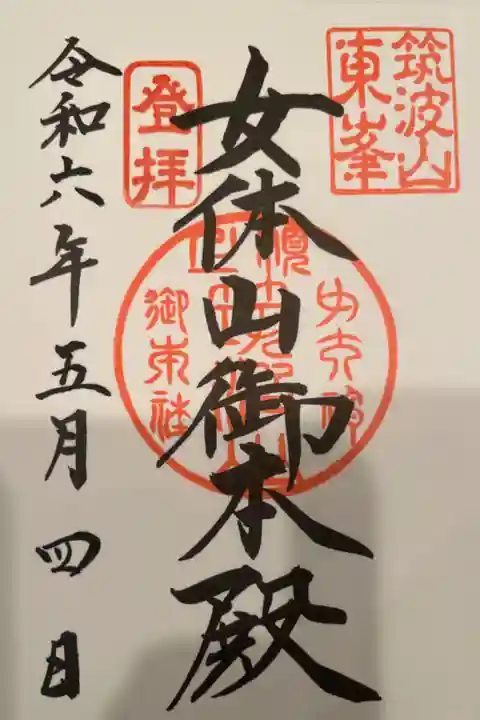 筑波山
東峯
女体山御本殿
登拝
令和六年五月四日